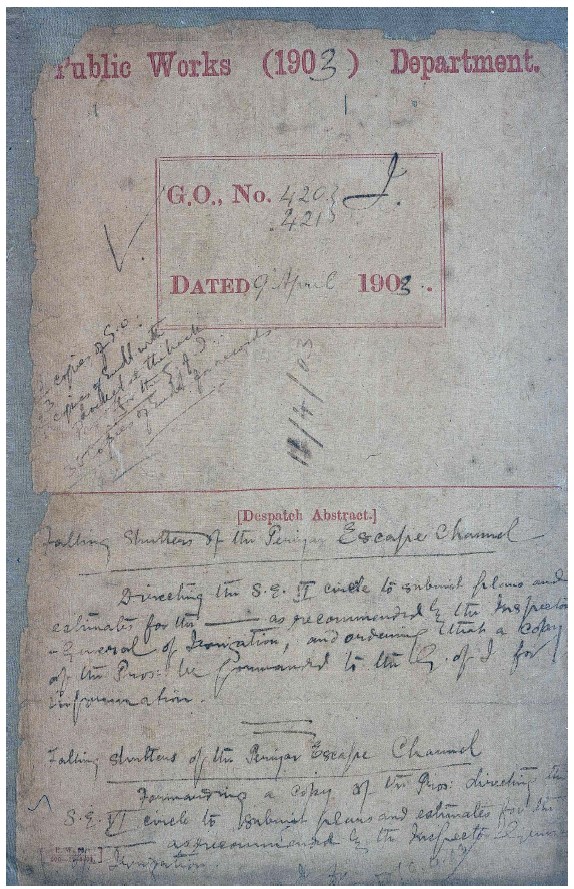 Public Works (1903) Department.
G.O., No. 420 I.
421
DATED 9 April 1903.
copies of G.O.
copies of
at the back
for the
copies of records
/4/03
[Despatch Abstract.]
Falling Shutters of the Periyar Escape Channel
Directing the S.E. VI circle to submit plans and
estimates for the —— as recommended by the Inspector
-General of Irrigation, and ordering that a copy
of the Pros: be forwarded to the G. of I for
information.
Falling shutters of the Periyar Escape Channel
Forwarding a copy of the Pros: directing the
S.E. VI circle to submit plans and estimates for the
—— as recommended by the Inspector General
Irrigation